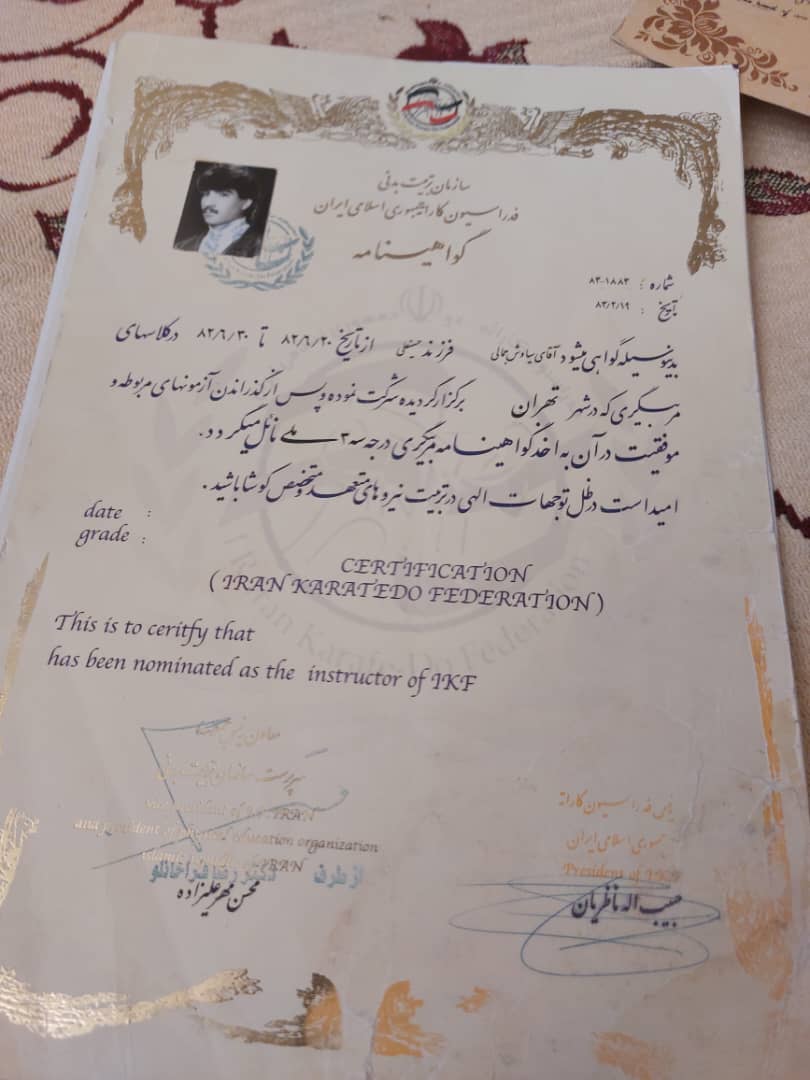 سازمان تربیت بدنی
فدراسیون کاراته جمهوری اسلامی ایران
گواهینامه
شماره : ۸۳-۱۸۸۳
تاریخ : ۸۳/۲/۱۹
بدینوسیله گواهی میشود آقای سیاوش جمالی فرزند حسینعلی از تاریخ ۸۲/۶/۲۰ تا ۸۲/۶/۳۰ در کلاسهای
مربیگری که در شهر تهران برگزار گردیده شرکت نموده و پس از گذراندن آزمونهای مربوطه و
موفقیت در آن به اخذ گواهینامه مربیگری درجه سه ۳ ملی نائل میگردد.
امید است در ظل توجهات الهی در تربیت نیروهای متعهد و متخصص کوشا باشید.
date :
grade :
CERTIFICATION
( IRAN KARATEDO FEDERATION )
This is to ceritfy that
has been nominated as the instructor of IKF
معاون رئیس جمهور
سرپرست سازمان تربیت بدنی
vice president of I.R. IRAN
and president of physical education organization
islamic republic of IRAN
از طرف دکتر رضا قراخانلو
محسن مهرعلیزاده
رئیس فدراسیون کاراته
جمهوری اسلامی ایران
President of IKF
حبیب اله ناظریان